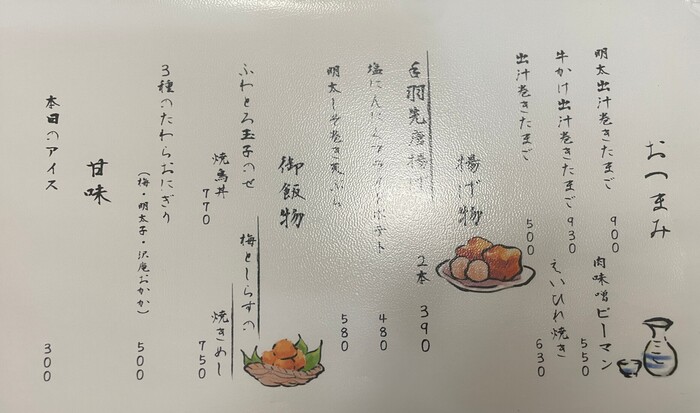 おつまみ
明太出汁巻きたまご 900
肉味噌ピーマン 550
牛かけ出汁巻きたまご 930
えいひれ焼き 630
出汁巻きたまご 500
揚げ物
手羽先唐揚げ 2本 390
塩にんにくフライドポテト 480
明太しそ巻き天ぷら 580
御飯物
ふわとろ玉子のせ
焼鳥丼 770
梅としらすの
焼きめし 750
3種のたわらおにぎり
(梅・明太子・沢庵おかか) 500
甘味
本日のアイス 300